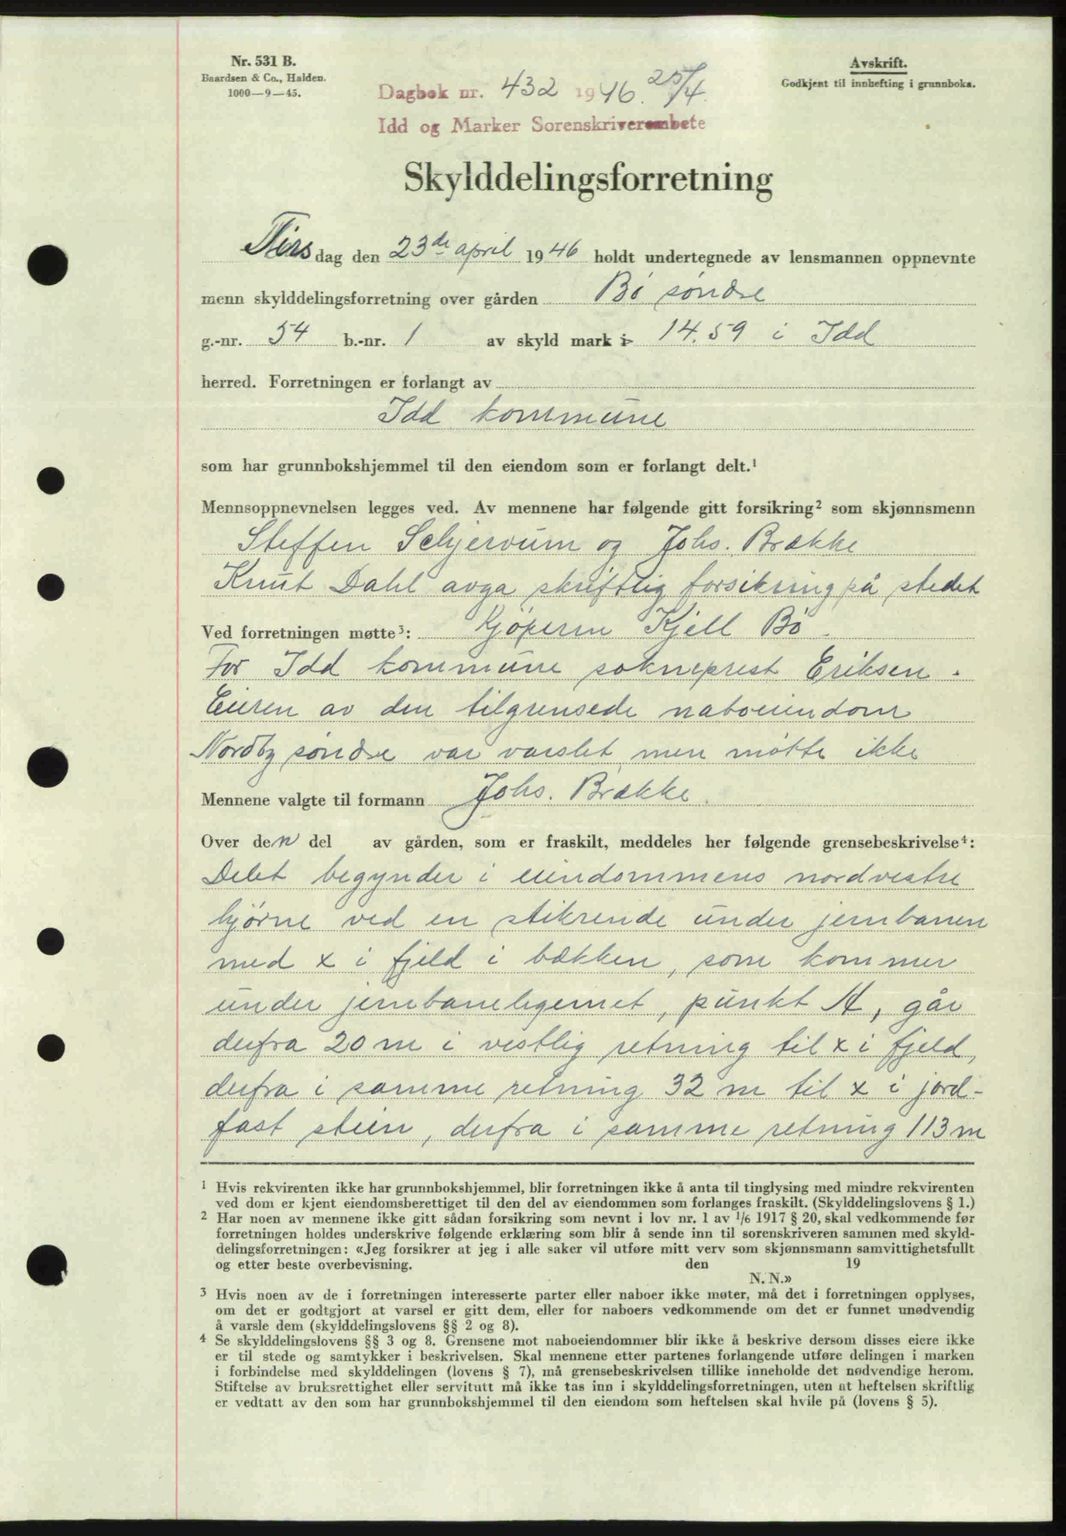 Nr. 531 B.
Baardsen & Co., Halden.
1000—9—45.
Avskrift.
Godkjent til innhefting i grunnboka.
Dagbok nr. 432 1946. 25/4.
Idd og Marker Sorenskriverembete
Skylddelingsforretning
Tirsdag den 23de april 1946 holdt undertegnede av lensmannen oppnevnte
menn skylddelingsforretning over gården Bø søndre
g.-nr. 54 b.-nr. 1 av skyld mark 14.59 i Idd
herred. Forretningen er forlangt av
Idd kommune
som har grunnbokshjemmel til den eiendom som er forlangt delt.¹
Mennsoppnevnelsen legges ved. Av mennene har følgende gitt forsikring² som skjønnsmenn
Steffen Schjervum og Johs. Brække
Knut Dahl avga skriftlig forsikring på stedet
Ved forretningen møtte³: Kjøperne Kjell Bø.
For Idd kommune sokneprest Eriksen.
Eieren av den tilgrensede naboeiendom
Nordby søndre var varslet, men møtte ikke
Mennene valgte til formann Johs. Brække.
Over den del av gården, som er fraskilt, meddeles her følgende grensebeskrivelse⁴:
Delet begynder i eiendommens nordvestre
hjørne ved en stikrende under jernbanen
med x i fjeld i bækken, som kommer
under jernbanelegemet, punkt A, går
derfra 20 m i vestlig retning til x i fjeld,
derfra i samme retning 32 m til x i jord-
fast stein, derfra i samme retning 113 m
¹ Hvis rekvirenten ikke har grunnbokshjemmel, blir forretningen ikke å anta til tinglysing med mindre rekvirenten
ved dom er kjent eiendomsberettiget til den del av eiendommen som forlanges fraskilt. (Skylddelingslovens § 1.)
² Har noen av mennene ikke gitt sådan forsikring som nevnt i lov nr. 1 av 1/6 1917 § 20, skal vedkommende før
forretningen holdes underskrive følgende erklæring som blir å sende inn til sorenskriveren sammen med skyld-
delingsforretningen: «Jeg forsikrer at jeg i alle saker vil utføre mitt verv som skjønnsmann samvittighetsfullt
og etter beste overbevisning. den 19
N. N.»
³ Hvis noen av de i forretningen interesserte parter eller naboer ikke møter, må det i forretningen opplyses,
om det er godtgjort at varsel er gitt dem, eller for naboers vedkommende om det er funnet unødvendig
å varsle dem (skylddelingslovens §§ 2 og 8).
⁴ Se skylddelingslovens §§ 3 og 8. Grensene mot naboeiendommer blir ikke å beskrive dersom disses eiere ikke
er til stede og samtykker i beskrivelsen. Skal mennene etter partenes forlangende utføre delingen i marken
i forbindelse med skylddelingen (lovens § 7), må grensebeskrivelsen tillike inneholde det nødvendige herom.
Stiftelse av bruksrettighet eller servitutt må ikke tas inn i skylddelingsforretningen, uten at heftelsen skriftlig
er vedtatt av den som har grunnbokshjemmel til den eiendom som heftelsen skal hvile på (lovens § 5).